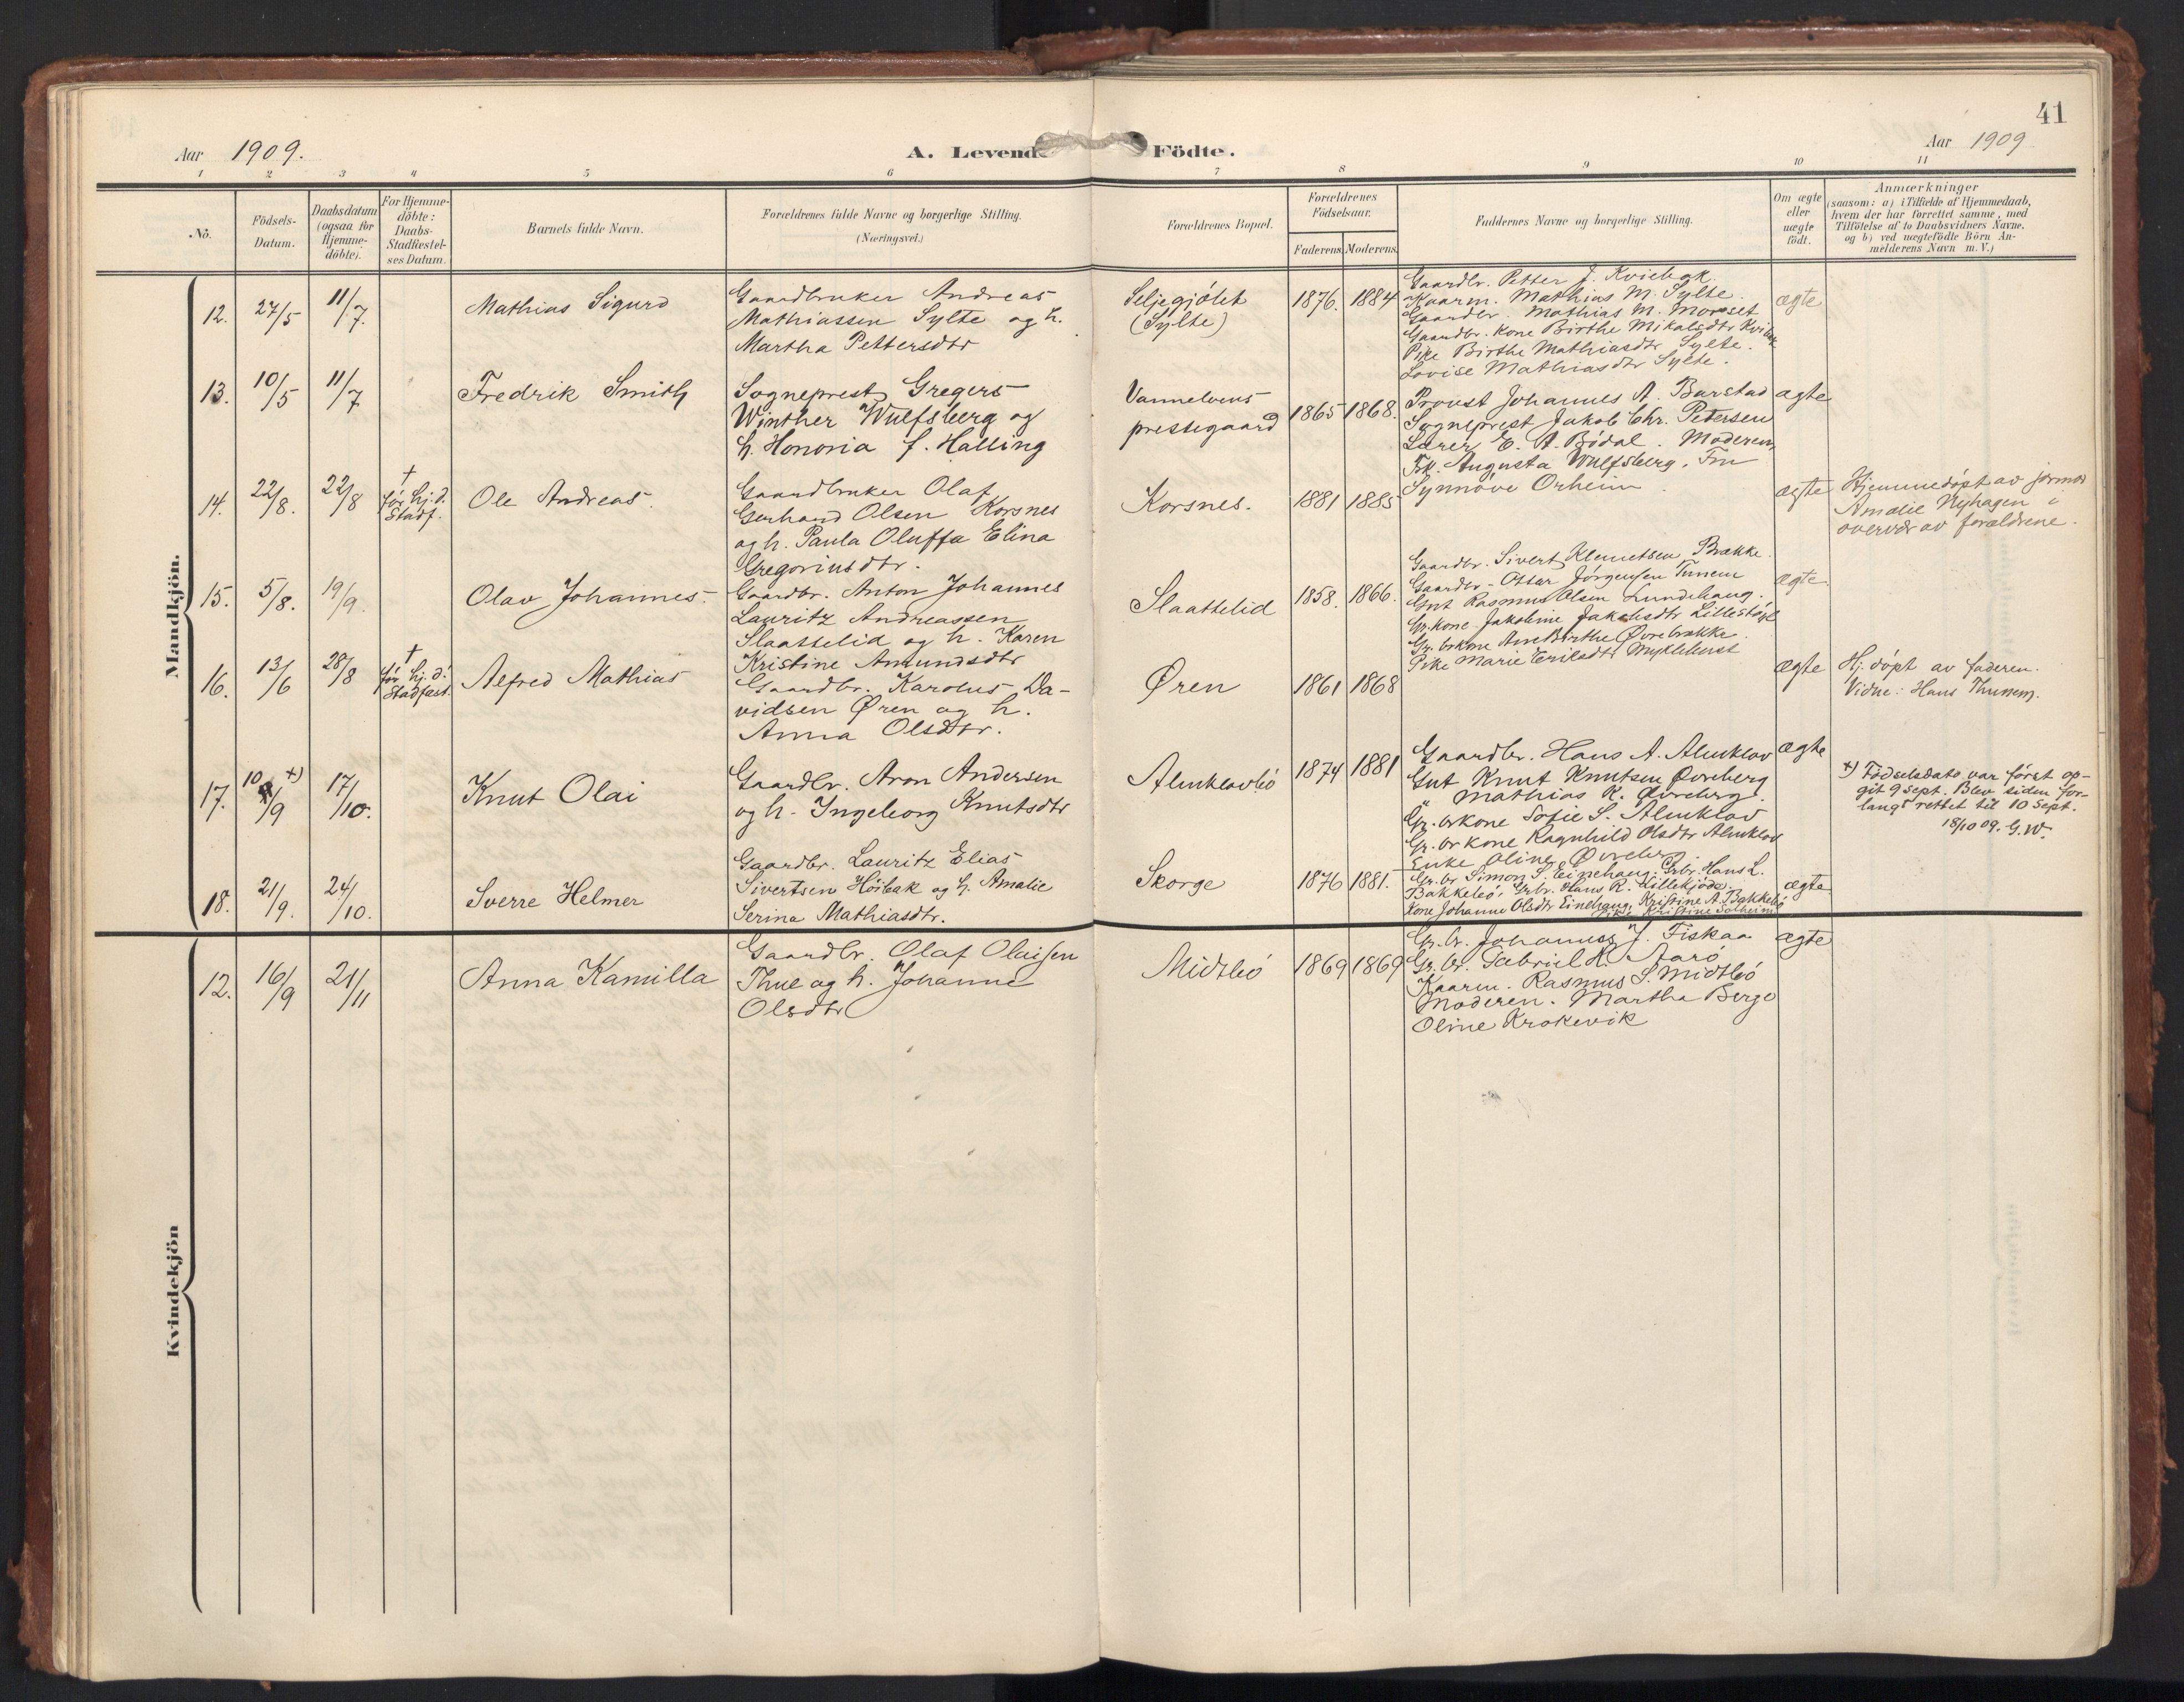 41
Aar 1909.
A. Levende Födte.
Aar 1909
1 2 3 4 5 6 7 8 9 10 11
No.
Födsels-
Datum.
Daabsdatum
(ogsaa for
Hjemme-
döbte).
For Hjemme-
döbte:
Daabs-
Stadfæstel-
ses Datum.
Barnets fulde Navn.
Forældrenes fulde Navne og borgerlige Stilling.
(Næringsvei.)
Forældrenes Bopæl.
Forældrenes
Födselsaar.
Faderens Moderens
Faddernes Navne og borgerlige Stilling.
Om ægte
eller
uægte
födt.
Anmærkninger
(saasom: a) i Tilfælde af Hjemmedaab,
hvem der har forrettet samme, med
Tilföielse af to Daabsvidners Navne,
og b) ved uægtefödte Börn An-
melderens Navn m. V.)
Mandkjön.
12. 27/5 11/7.
Mathias Sigurd
Gaardbruker Andreas
Mathiassen Sylte og h.
Martha Pettersdtr
Seljegjölet
(Sylte)
1876. 1884
Gaardbr. Petter J. Kvichak.
Kaarm. Mathias M. Sylte.
Gaardbr. Mathias M. Morøset
Gaardbr. kone Birthe Mikalsdtr
Pike Birthe Mathiasdtr Sylte.
Lovise Mathiasdtr Sylte.
ægte
13. 10/5 11/7
Fredrik Smith
Sogneprest Gregers
Winther Wulfsberg og
h. Honoria f. Halling
Vannelvens
prestegaard
1865 1868.
Provst Johannes A. Barstad
Sogneprest Jakob Chr. Petersen
Lærer E. A. Bödal. Moderen,
Frk. Augusta Wulfsberg. Fru
Synnöve Orheim
ægte
14. 22/8. 22/8
† før hj.d.
Stadf.
Ole Andreas.
Gaardbruker Olaf
Gerhard Olsen Korsnes
og h. Paula Oluffa Elina
Gregoriusdtr.
Korsnes.
1881 1885
ægte
Hjemmedöpt av jormor
Amalie Nyhagen i
overvær av forældrene.
15. 5/8. 19/9.
Olav Johannes.
Gaardbr. Anton Johannes
Lauritz Andreassen
Slaattelid og h. Karen
Kristine Amundsdtr
Slaattelid
1858. 1866.
Gaardbr. Sivert Klemetsen Brække.
Gaardbr. Ottar Jörgensen Tunem
Gut Rasmus Olsen Lundehaug.
Gr.kone Jakobine Jakobsdtr
Gr. brkone Ane Birthe Övrebrække.
Pike Marie Eriksdtr Myklebust
ægte.
16. 13/6 28/8
† før hj.d.
Stadfæst.
Alfred Mathias
Gaardbr. Karolus Da-
vidsen Øren og h.
Anna Olsdtr.
Øren
1861 1868
ægte
Hj. döpt av faderen.
Vidne: Hans Thunem.
17. 10/9 +) 17/10.
Knut Olai
Gaardbr. Aron Andersen
og h. Ingeborg Knutsdtr
Almklovbö
1874 1881
Gaardbr. Hans A. Almklov
Gut Knut Knutsen Övreberg
" Mathias K. Övreberg.
Gr. brkone Sofie S. Almklov
Gr. br kone Ragnhild Olsdtr Almklov
Enke Oline Övreberg.
ægte
+) Födselsdato var först op-
git 9 Sept. Blev siden for-
langt rettet til 10 Sept.
18/10 09. G.W.
18. 21/9. 24/10.
Sverre Helmer
Gaardbr. Lauritz Elias
Sivertsen Höibak og h. Amalie
Serina Mathiasdtr.
Skorge
1876 1881.
Gr. br Simon S. Einehaug. Grbr. Hans L.
Bakkebö, Grbr. Hans R. Lillekjöde.
Kone Johanne Olsdtr Einehaug, Kristine A. Bakkebö
Pike Kristine Solheim
ægte
Kvindekjön
12. 16/9 21/11
Anna Kamilla
Gaardbr. Olaf Olaisen
Thue og h. Johanne
Olsdtr
Midtbö
1869 1869
Gr. br. Johannes J. Fiskaa
Gr. br. Gabriel K. Aarö
Kaarm. Rasmus S. Midtbö
Moderen. Martha Berge
Oline Krokevik
ægte